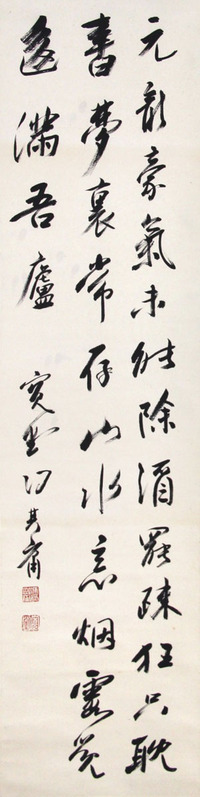 元龍豪氣未能除酒罷疎狂只耽
書夢裏常存山水意烟雲
滿吾廬
寬堂馮其庸